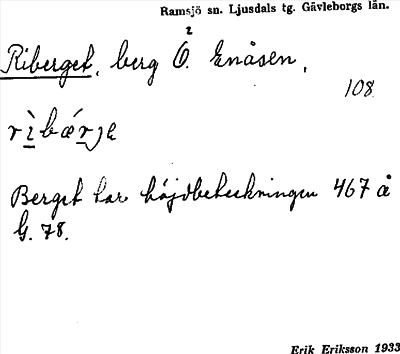 Ramsjö sn. Ljusdals tg. Gävleborgs län.
Riberget, berg Ö. Enåsen,
108.
rìbærje
Berget har höjdbeteckningen 467 å
G. 78.
Erik Eriksson 1933